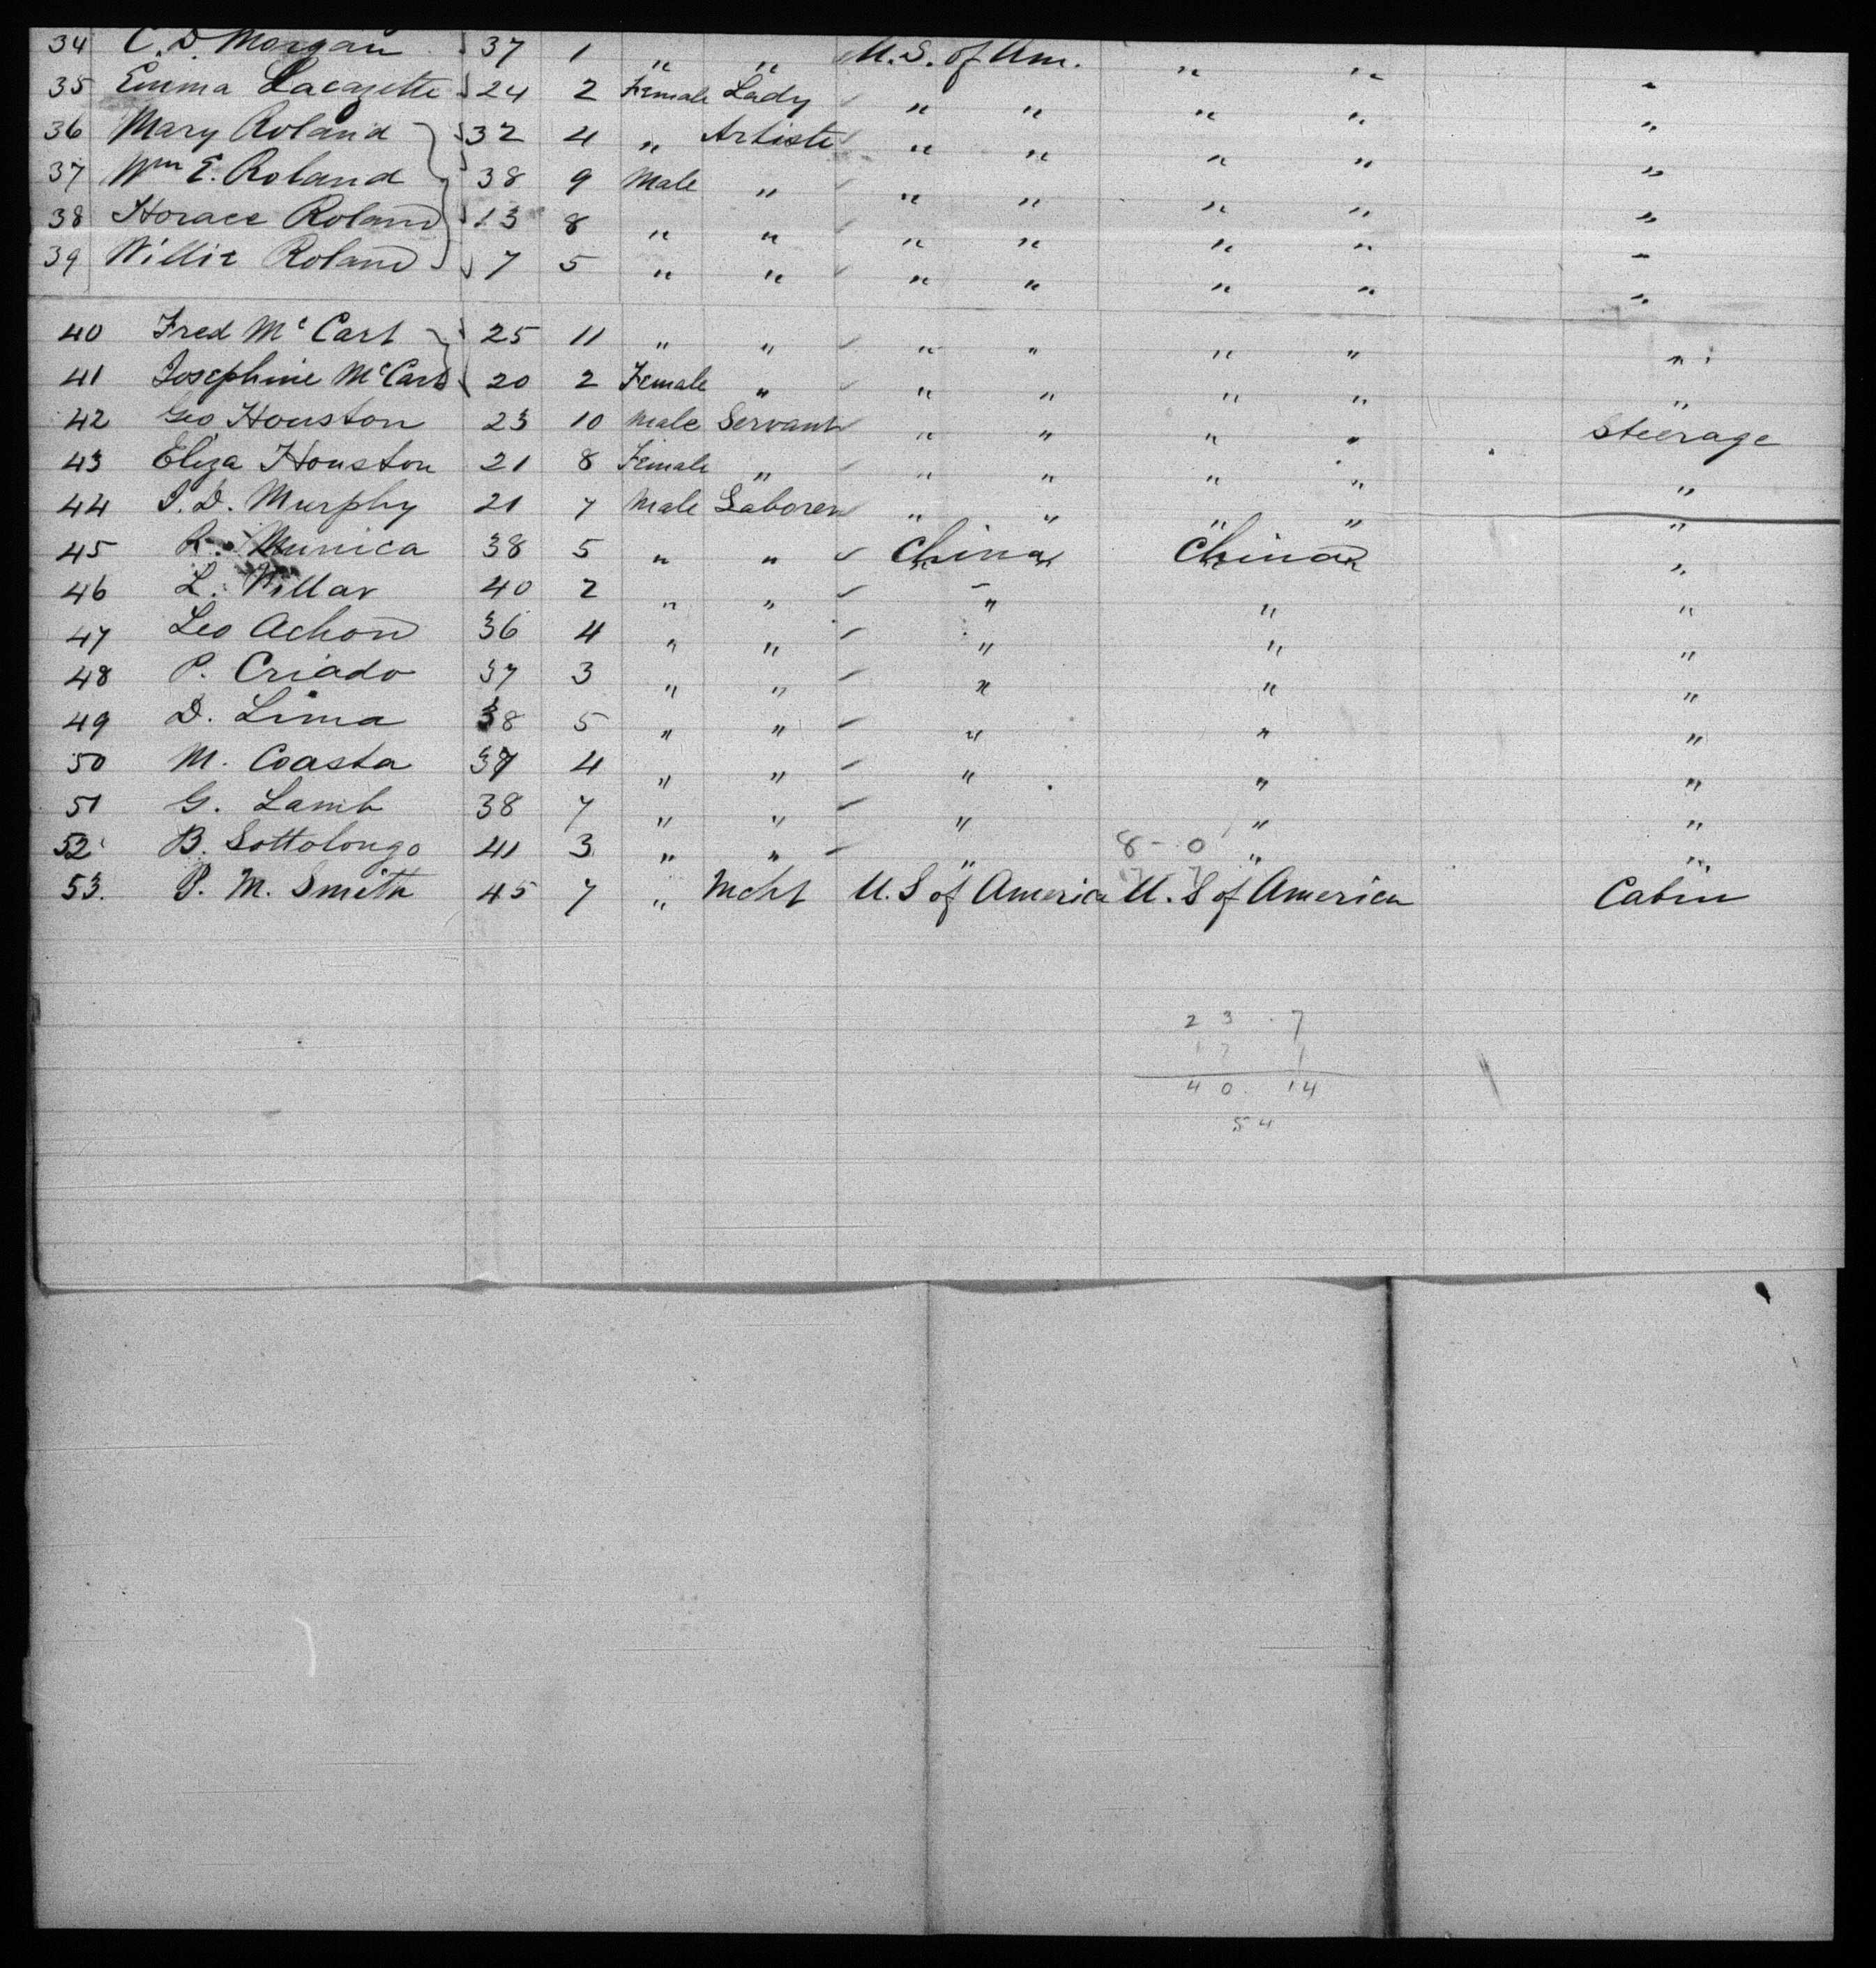 34 C. D Morgan 37 1 " " U.S. of Am. " " "
35 Emma Lacazette 24 2 Female Lady " " " " "
36 Mary Roland 32 4 " Artiste " " " " "
37 Wm E. Roland 38 9 Male " " " " " "
38 Horace Roland 13 8 " " " " " " "
39 Willie Roland 7 5 " " " " " " "
40 Fred McCart 25 11 " " " " " " "
41 Josephine McCart 20 2 Female " " " " " "
42 Geo Houston 23 10 Male Servant " " " " Steerage
43 Eliza Houston 21 8 Female " " " " " "
44 J. D. Murphy 21 7 Male Laborer " " " " "
45 R. Munica 38 5 " " China China "
46 L. Villar 40 2 " " " " "
47 Leo Achon 36 4 " " " " "
48 P. Criado 37 3 " " " " "
49 D. Lima 38 5 " " " " "
50 M. Coasta 37 4 " " " " "
51 G. Lamb 38 7 " " " " "
52 B. Sottolongo 41 3 " " " 8-0 " "
53. P. M. Smith 45 7 " Mcht U.S of America U.S of America Cabin
23 . 7
40. 14
54